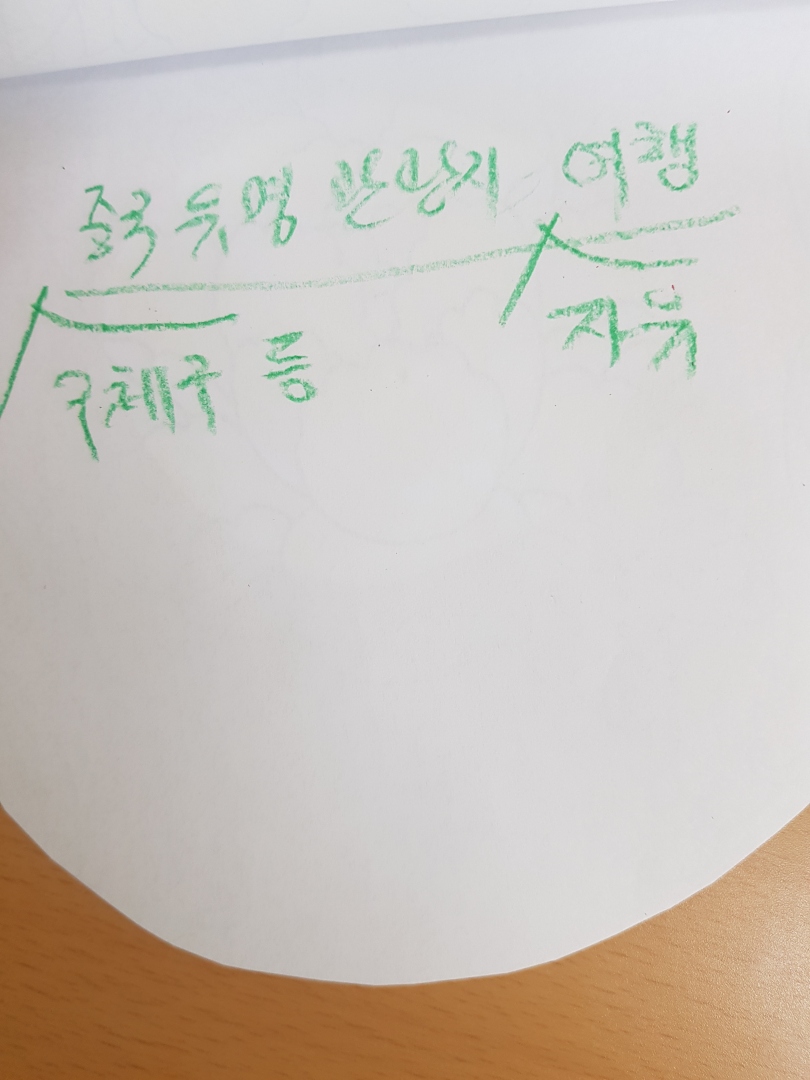 중국 유명 관광지 여행
구채구 등 자유